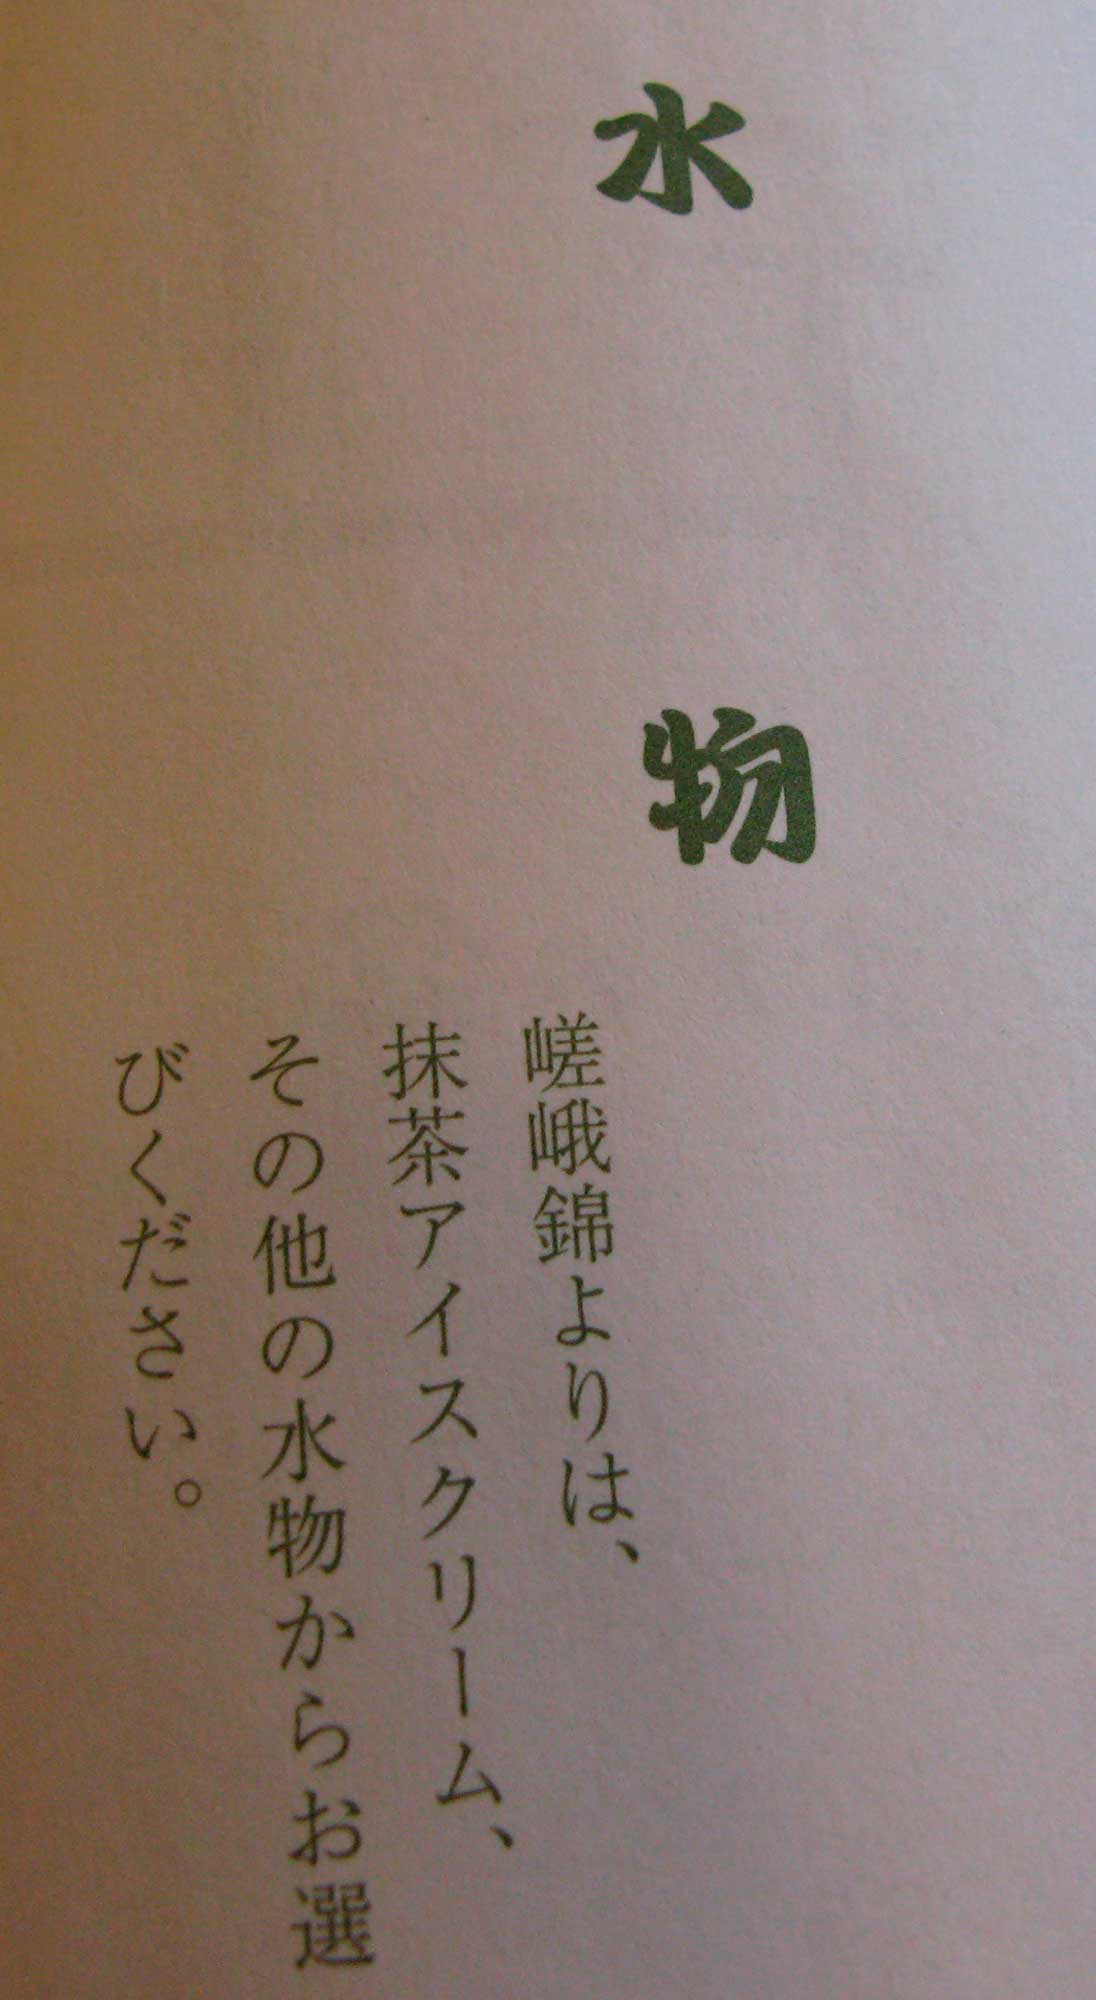 水物
嵯峨錦よりは、
抹茶アイスクリーム、
その他の水物からお選
びください。